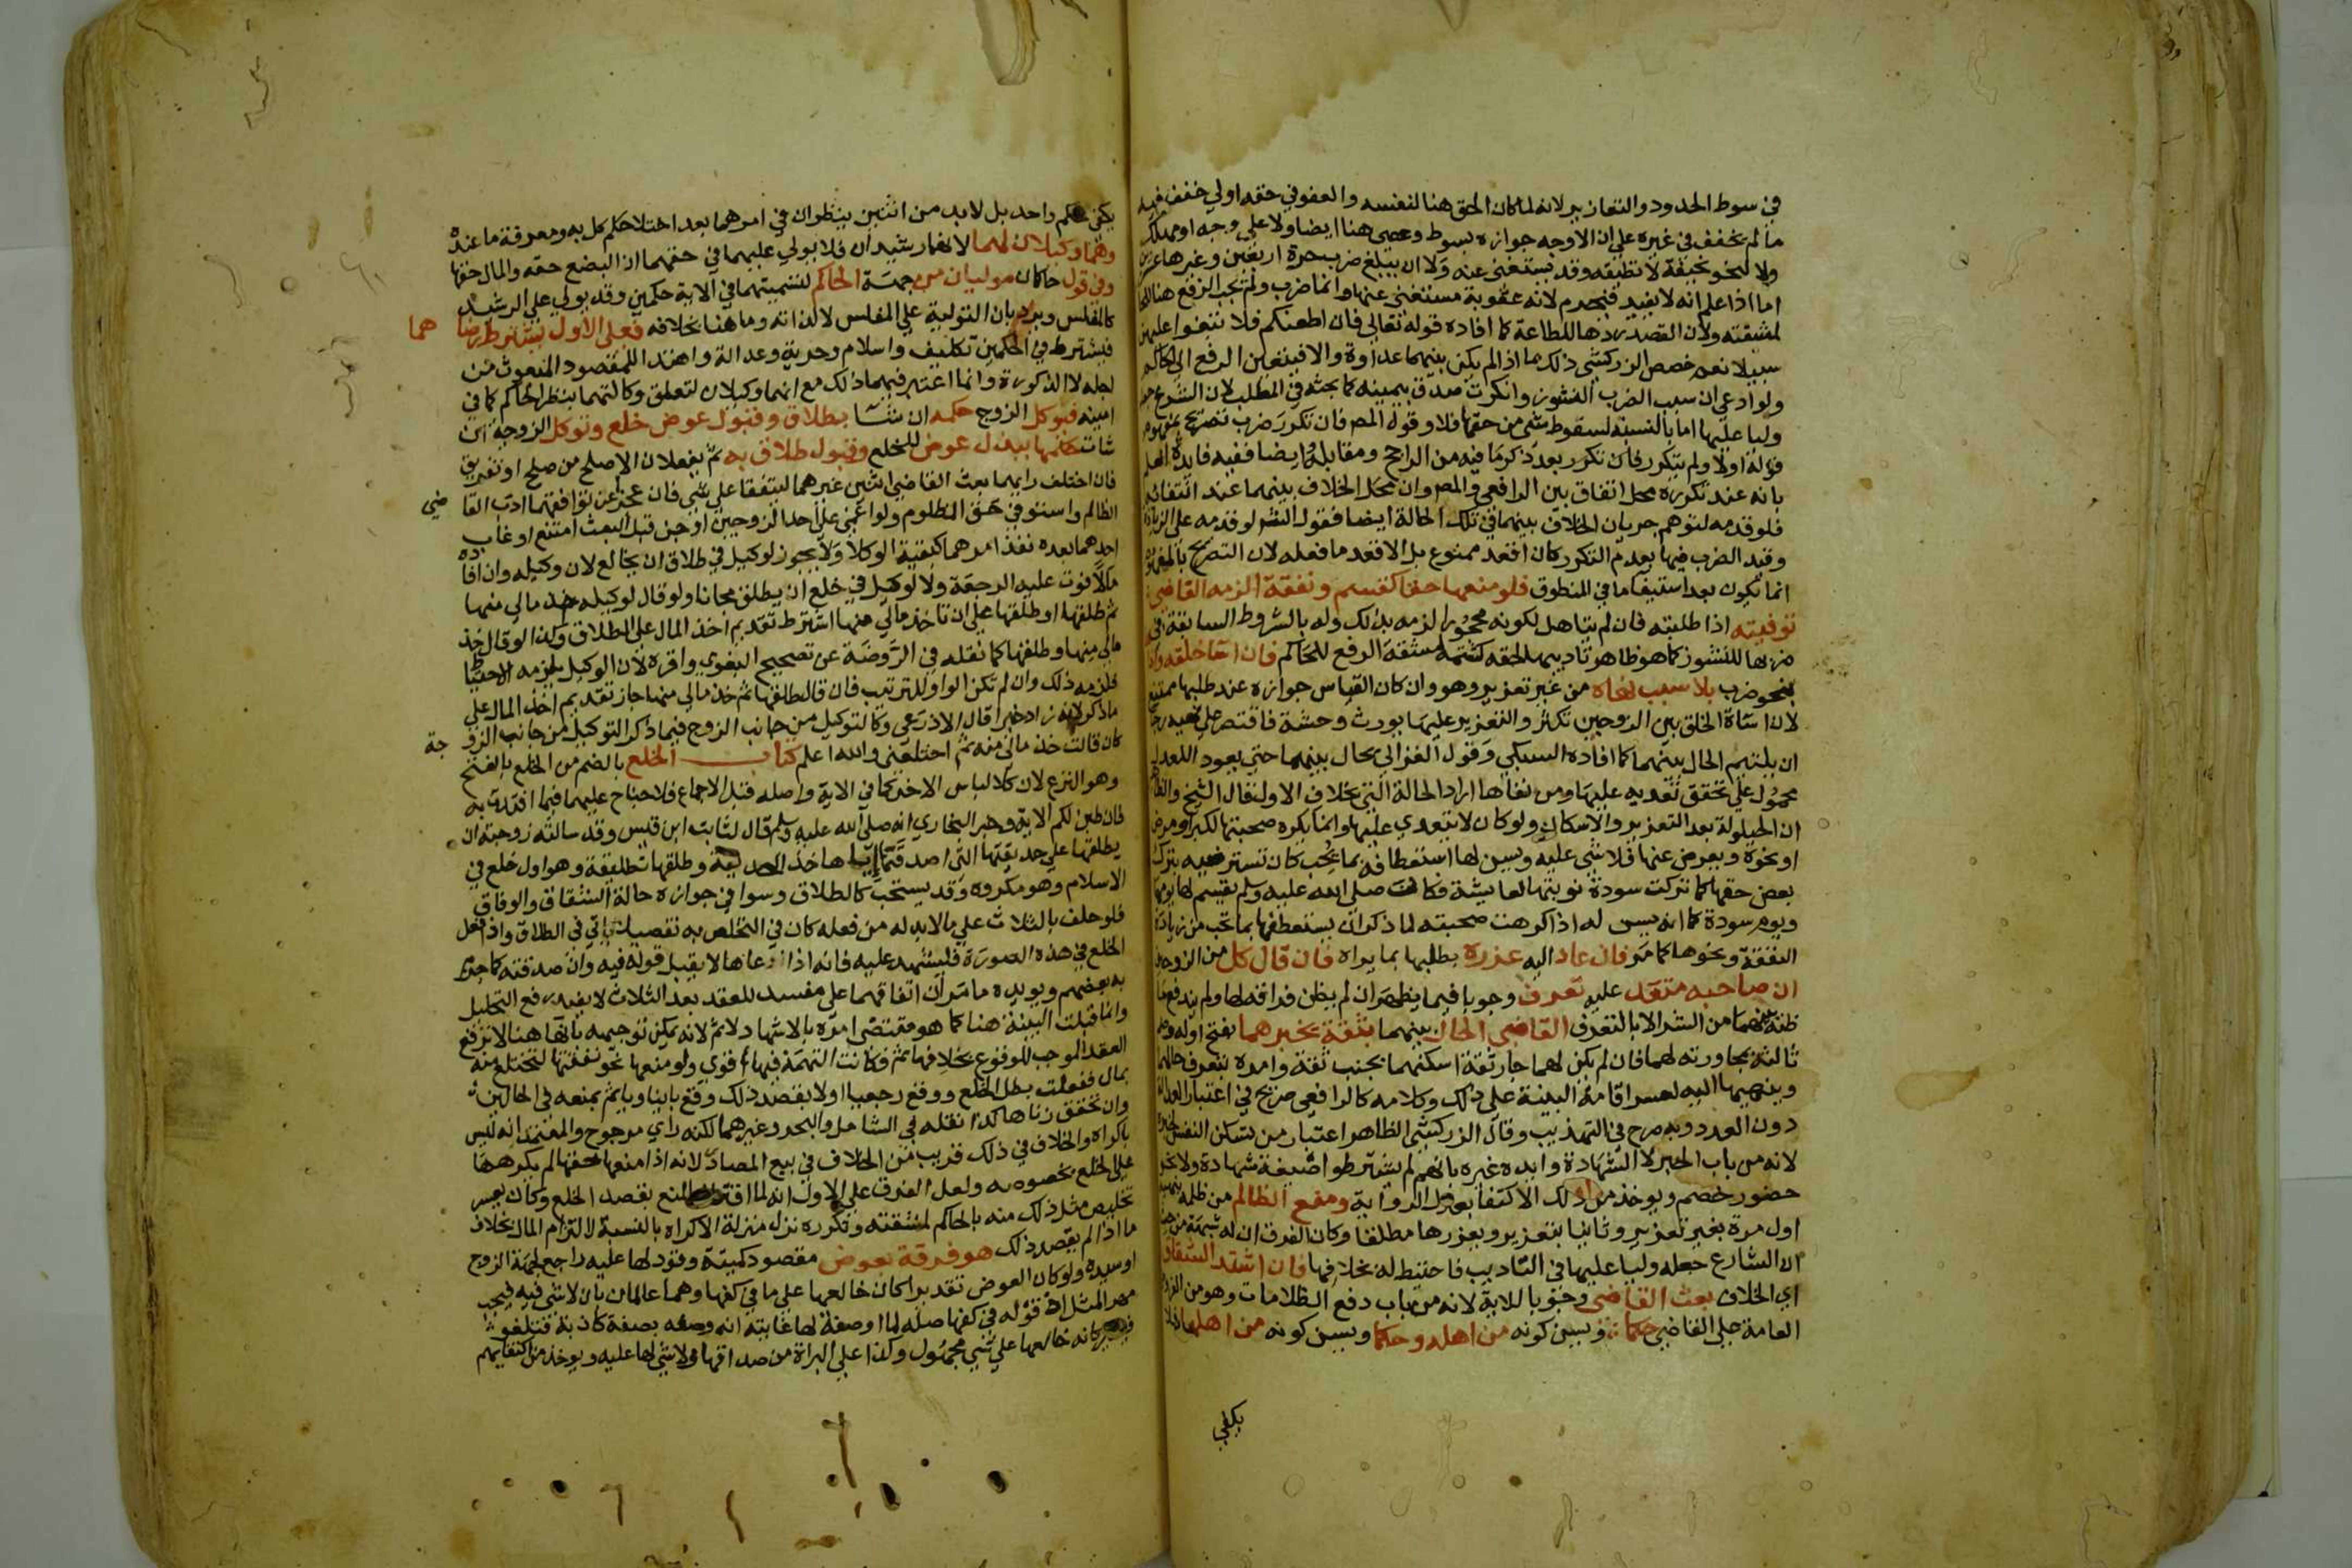 في سوط الحدود والتعازير لانه لما كان الحق هنا لنفسه والعفو في حقه اولي خفف فيه
ما لم يخفف في غيره علي ان الاوجه جوازه بسوط وعصي هنا ايضا ولا علي وجه او مهلك
ولا لنحو نحيفة لا تطيقه وقد يستغني عنه ولا ان يبلغ ضرب حرة اربعين وغيرها عشرين
اما اذا علم انه لا يفيد فيحرم لانه عقوبة مستغني عنها وانما ضرب ولم يجب الرفع هنا
لمشقته ولان القصد ردها للطاعة كما افاده قوله تعالي فان اطعنكم فلا تبغوا عليهن
سبيلا نعم خصص الزركشي ذلك بما اذا لم يكن بينهما عداوة والا فيتعين الرفع الي الحاكم
ولو ادعي ان سبب الضرب النشوز وانكرت صدق بيمينه كما بحثه في المطلب لان الشرع جعله
وليا عليها اما بالنسبة لسقوط شي من حقها فلا وقول المص فان تكرر ضرب تصريح بمفهوم
قوله اولا ولم يتكرر فان تكرر بعد ذكر ما فيه من الراجح ومقابله وايضا ففيه فايدة العلم
بانه عند تكرره محل اتفاق بين الرافعي والمص وان محل الخلاف بينهما عند انتفائه
فلو قدمه لتوهم جريان الخلاف بينهما في تلك الحالة ايضا فقول الشر لو قدمه علي الزيادة
وقيد الضرب فيها بعدم التكرر كان اقعد ممنوع بل الاقعد ما فعله لان التصريح بالمفهوم
انما يكون بعد استيفا ما في المنطوق فلو منعها حقا كقسم ونفقة الزمه القاضي
توفيته اذا طلبته فان لم يتاهل لكونه محجورا لزمه بذلك وله بالشروط السابقة في
ضربها للنشوز كما هو ظاهر تاديبها لحقه كشتمه لمشقة الرفع للحاكم فان اسا خلقه واذاها
بنحو ضرب بلا سبب نهاه من غير تعزير وهو وان كان القياس جوازه عند طلبها ممتنع
لان اساة الخلق بين الزوجين تكثر والتعزير عليها يورث وحشة فاقتصر علي نهيه رجا
ان يلتيم الحال بينهما كما افاده السبكي وقول الغزالي يحال بينهما حتي يعود للعدل
محمول علي تحقق تعديه عليها ومن نفاها اراد الحالة التي بخلاف الاول قال الشيخ والظاهر
ان الحيلولة بعد التعزير والاسكان ولو كان لا يتعدي عليها وانما يكره صحبتها لكبر او مرض
او نحوه ويعرض عنها فلا شي عليه ويسن لها استعطافه بما يحب كان تسترضيه بترك
بعض حقها كما تركت سودة نوبتها لعايشة فكان صلي الله عليه وسلم يقسم لها يومها
ويوم سودة كما انه يسن له اذا كرهت صحبته لما ذكر ان يستعطفها بما تحب من زيادة
النفقة ونحوها كما مر فان عاد اليه عزره بطلبها بما يراه فان قال كل من الزوجين
ان صاحبه متعد عليه تعرف وجوبا فيما يظهر ان لم يظن فراقه لها ولم يندفع ما
ظنه بينهما من الشر الا بالتعرف القاضي الحال بينهما بثقة يخبرهما بفتح اوله وضم
ثالثه بمجاورته لهما فان لم يكن لهما جار ثقة اسكنهما بجنب ثقة وامره بتعرف حالهما
وينهيهما اليه لعسر اقامة البينة علي ذلك وكلامه كالرافعي صريح في اعتبار العدالة
دون العدد وبه صرح في التهذيب وقال الزركشي الظاهر اعتبار من تسكن النفس لخبره
لانه من باب الخبر لا الشهادة وايده غيره بانهم لم يشترطوا صيغة شهادة ولا نحو
حضور خصم ويوخذ من ذلك الاكتفا بعدل الرواية ومنع الظالم من ظلمه بنهيه
اول مرة بغير تعزير وثانيا بتعزير ويعزرها مطلقا وكان الفرق ان له شبهة من حيث
ان الشارع جعله وليا عليها في التاديب فاحتيط له بخلافها فان اشتد الشقاق
اي الخلاف بعث القاضي وجوبا للاية لانه من باب دفع الظلامات وهو من الفروض
العامة علي القاضي حكما ويسن كونه من اهله وحكما ويسن كونه من اهلها فلا
يكفي
يكفي حكم واحد بل لابد من اثنين ينظران في امرهما بعد اختلا حكم كل به ومعرفة ما عنده
وهما وكيلان لهما لانهما رشيدان فلا يولي عليهما في حقهما اذ البضع حقه والمال حقها
وفي قول حاكمان موليان من جهة الحاكم لتسميتهما في الاية حكمين وقد يولي علي الرشيد
كالمفلس ويرد بان التولية علي المفلس لا لذاته وما هنا بخلافه فعلي الاول يشترط رضاهما
فيشترط في الحكمين تكليف واسلام وحرية وعدالة واهتدا للمقصود المبعوث من
اجله لا الذكورة وانما اعتبر فيهما ذلك مع انهما وكيلان لتعلق وكالتهما بنظر الحاكم كما في
امينه فيوكل الزوج حكمه ان شا بطلاق وقبول عوض خلع وتوكل الزوجة ان
شات حكمها ببذل عوض للخلع وقبول طلاق به ثم يفعلان الاصلح من صلح او تفريق
فان اختلف رايهما بعث القاضي اثنين غيرهما ليتفقا علي شي فان عجز عن توافقهما ادب القاضي
الظالم واستوفي حق المظلوم ولو اغمي علي احد الزوجين او جن قبل البعث امتنع او غاب
احدهما بعده نفذ امرهما كبقية الوكلا ولا يجوز لوكيل في طلاق ان يخالع لان وكيله وان افاده
مالا فوت عليه الرجعة ولا لوكيل في خلع ان يطلق مجانا ولو قال لوكيله خذ مالي منها
ثم طلقها او طلقها علي ان تاخذ مالي منها اشترط تقديم اخذ المال علي الطلاق وكذا لو قال خذ
مالي منها وطلقها كما نقله في الروضة عن تصحيح البغوي واقره لان الوكيل يلزمه الاحتياط
فلزمه ذلك وان لم تكن الواو للترتيب فان قال طلقها ثم خذ مالي منها جاز تقديم اخذ المال علي
ما ذكر لانه زاد خيرا قال الاذرعي وكالتوكيل من جانب الزوج فيما ذكر التوكيل من جانب الزوجة
كان قالت خذ مالي منه ثم اختلعني والله اعلم كتاب الخلع بالضم من الخلع بالفتح
وهو النزع لان كلا لباس الاخر كما في الاية واصله قبل الاجماع فلا جناح عليهما فيما افتدت به
فان طبن لكم الاية وخبر البخاري انه صلي الله عليه وسلم قال لثابت ابن قيس وقد سالته زوجته ان
يطلقها علي حديقتها التي اصدقها اياها خذ الحديقة وطلقها تطليقة وهو اول خلع في
الاسلام وهو مكروه وقد يستحب كالطلاق وسوا في جوازه حالة الشقاق والوفاق
فلو حلف بالثلاث علي ما لابد له من فعله كان في التخلص به تفصيل ياتي في الطلاق واذا فعل
الخلع في هذه الصورة فليشهد عليه فانه اذا ادعاها لا يقبل قوله فيه وان صدقته كما جزم
به بعضهم ويويده ما مر ان اتفاقهما علي مفسد للعقد بعد الثلاث لا يفيد رفع التحليل
وانما قبلت البينة هنا كما هو مقتضي امره بالاشهاد لا ثم لانه يمكن توجيهه بانها هنا لا ترفع
العقد الموجب للوقوع بخلافها ثم فكانت التهمة فيها اقوي ولو منعها نحو نفقتها لتختلع منه
بمال ففعلت بطل الخلع ووقع رجعيا او لا بقصد ذلك وقع باينا وياثم بمنعه في الحالين
وان تحقق زناها كذا نقله في الشامل والبحر وغيرهما لكنه راي مرجوح والمعتمد انه ليس
باكراه والخلاف في ذلك قريب من الخلاف في بيع المصادر لانه اذا منعها حقها لم يكرهها
علي الخلع بخصوصه ولعل الفرق علي الاول انه لما اقترن المنع بقصد الخلع وكان يعسر
تخليص مثل ذلك منه بالحاكم لمشقته وتكرره نزل منزلة الاكراه بالنسبة لالتزام المال بخلاف
ما اذا لم يقصد ذلك هو فرقة بعوض مقصود كميتة وقود لها عليه راجع لجهة الزوج
او سيده ولو كان العوض تقديرا كان خالعها علي ما في كفها وهما عالمان بان لا شي فيه فيجب
مهر المثل اذ قوله في كفها صلة لما او صفة لها غايته انه وصفه بصفة كاذبة فتلغو
فيصير كانه خالعها علي شي مجهول وكذا علي البراة من صداقها ولا شي لها عليه ويوخذ من اكتفايهم